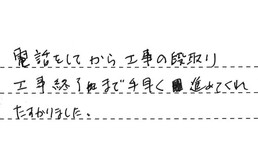 電話をしてから工事の段取り
工事終了まで手早く進めてくれ
たすかりました。